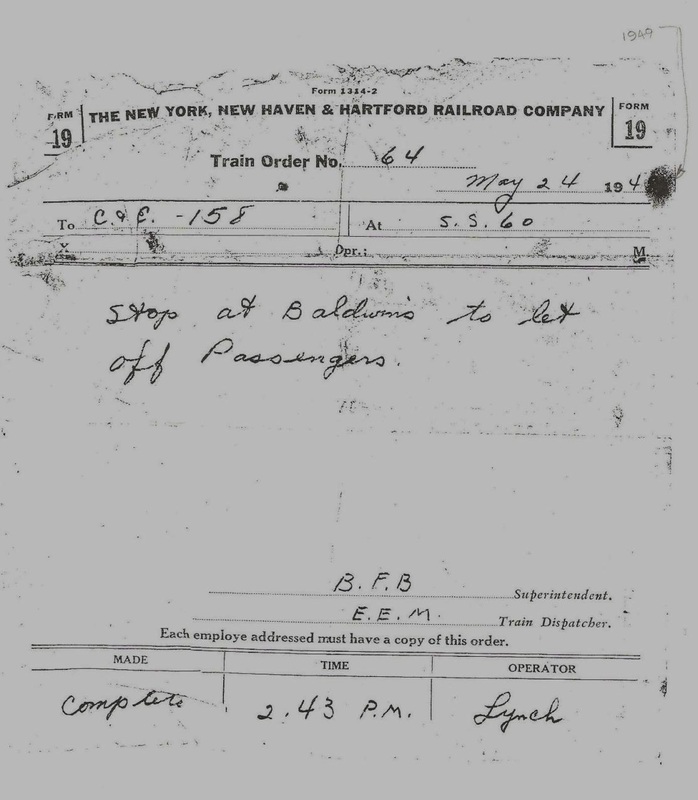 1949
Form 1314-2
FORM 19 THE NEW YORK, NEW HAVEN & HARTFORD RAILROAD COMPANY FORM 19
Train Order No. 64
May 24 194
To C. & E. - 158 At S. S. 60
X Opr.: M
Stop at Baldwins to let
off Passengers.
B. F. B Superintendent.
E. E. M. Train Dispatcher.
Each employe addressed must have a copy of this order.
MADE TIME OPERATOR
Complete 2.43 P.M. Lynch